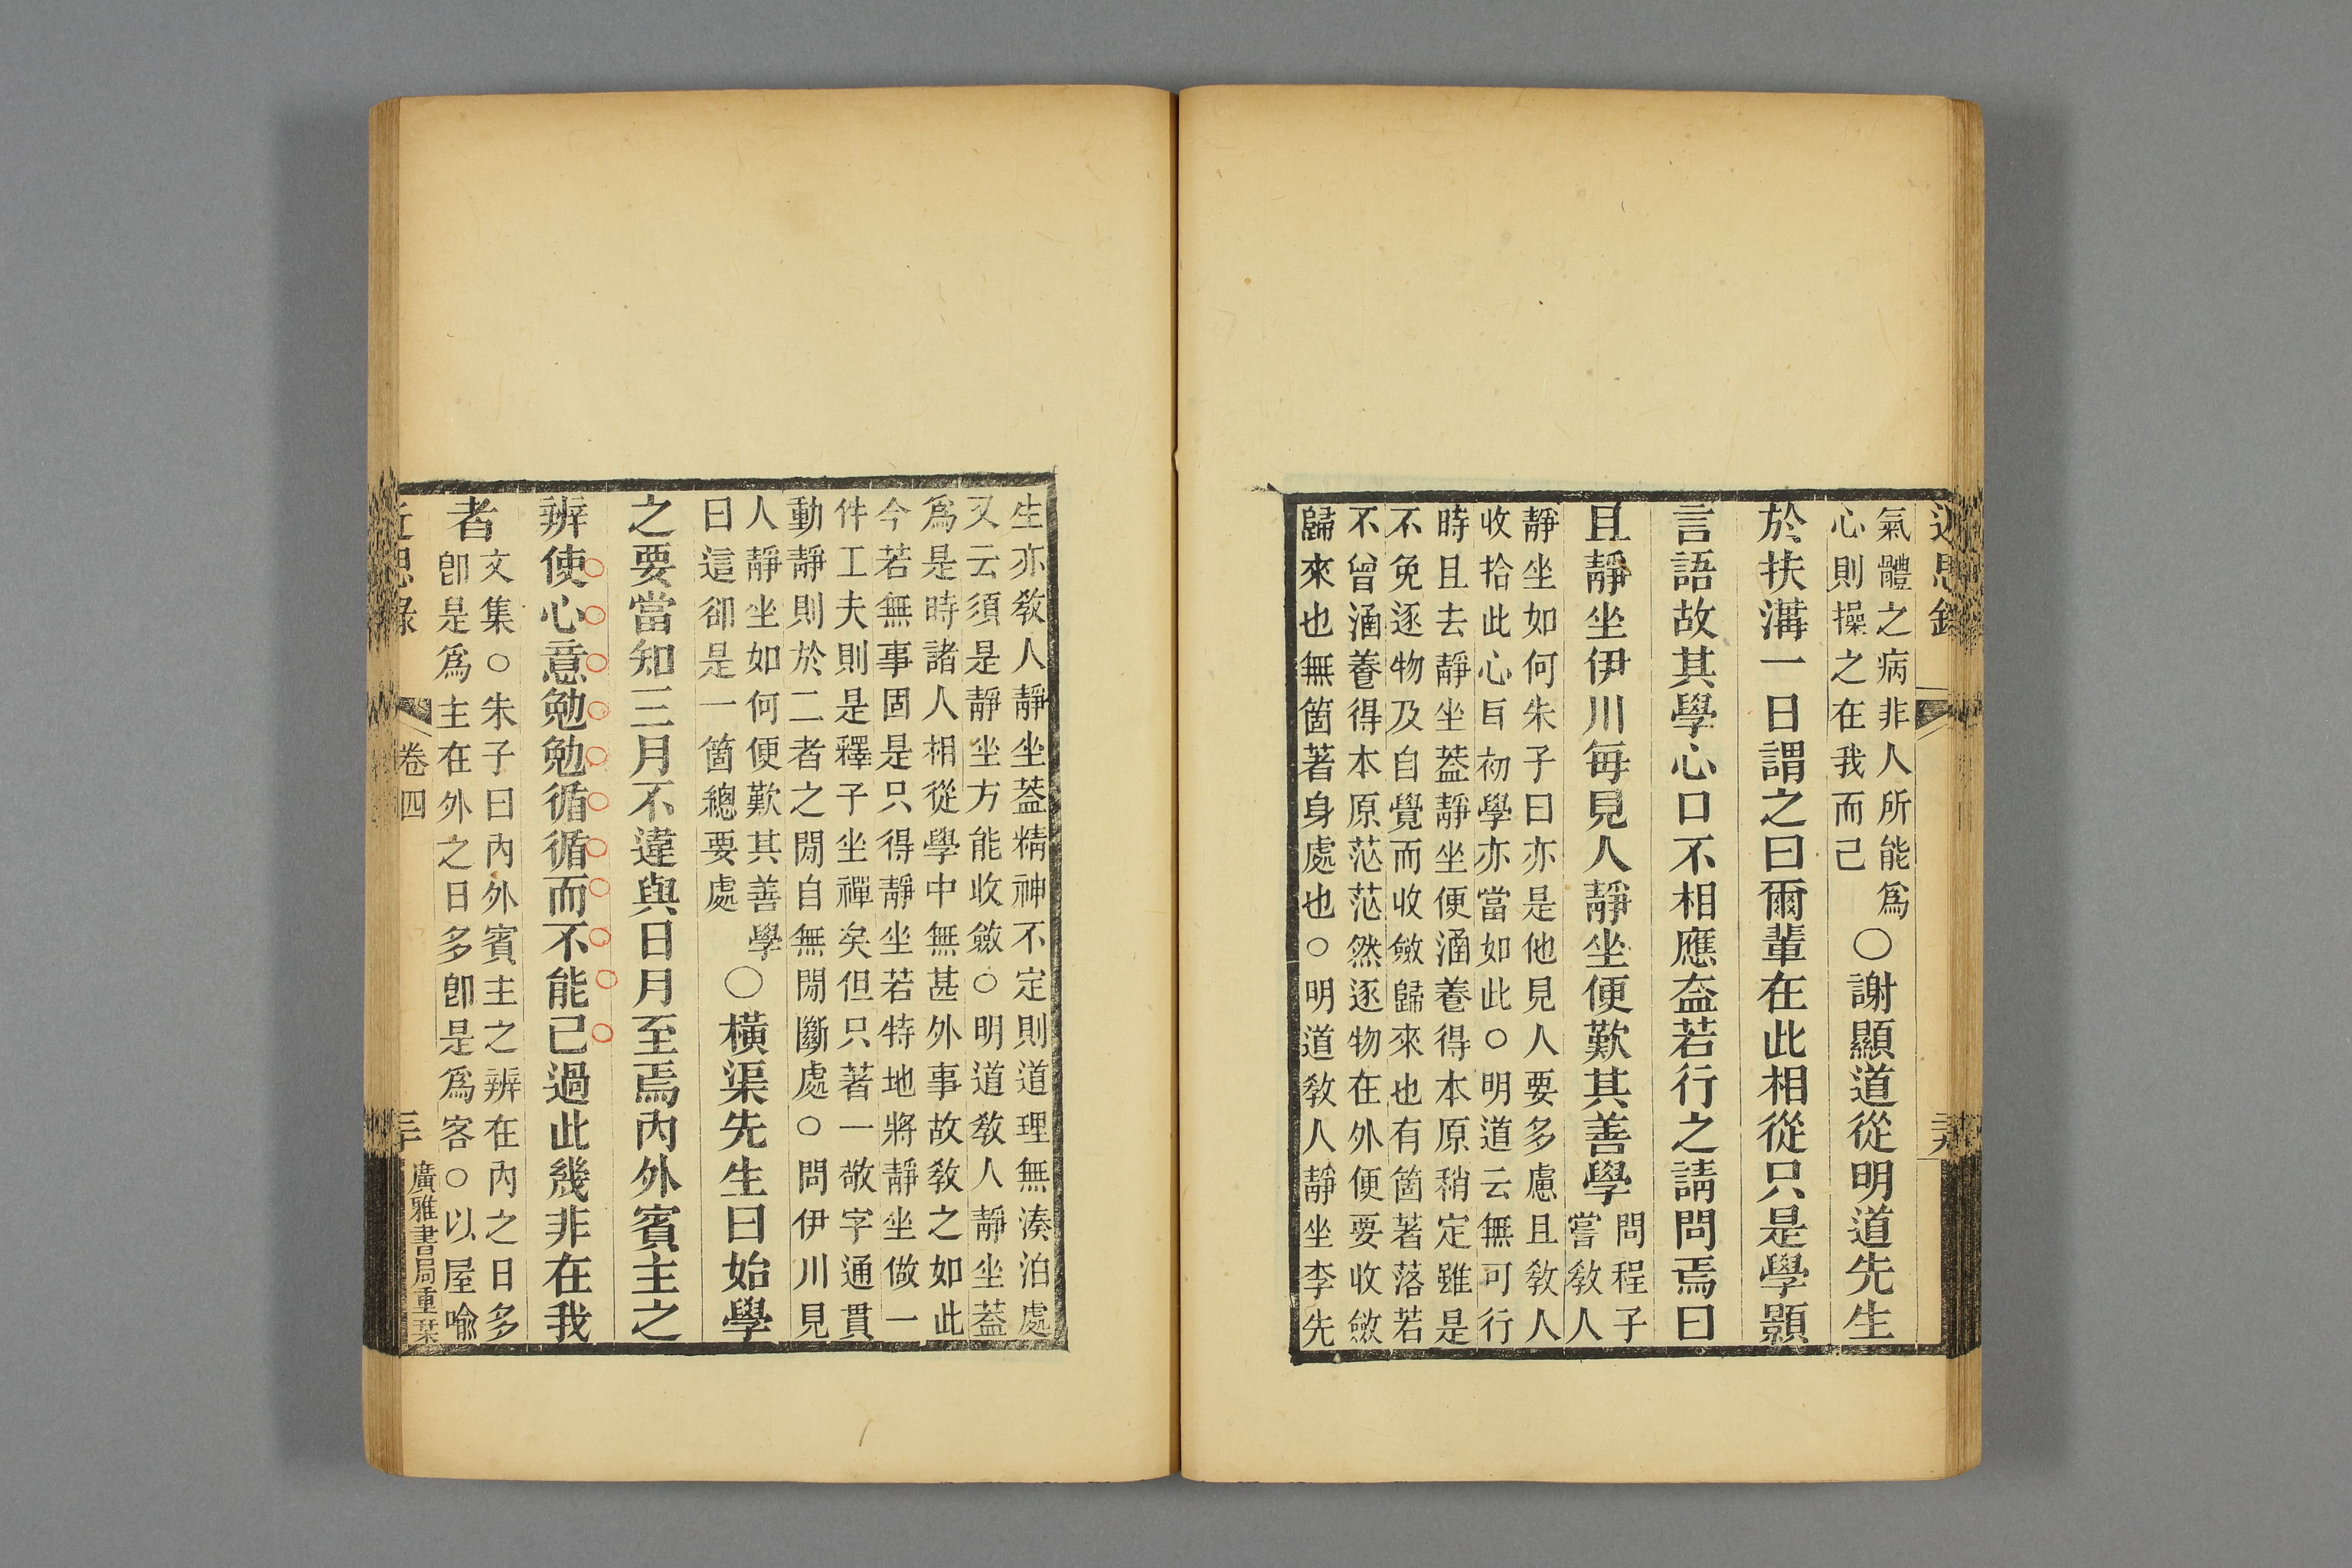 近思錄
氣體之病非人所能爲
心則操之在我而已
〇謝顯道從明道先生
於扶溝一日謂之曰爾輩在此相從只是學顥
言語故其學心口不相應盍若行之請問焉曰
且靜坐伊川每見人靜坐便歎其善學
問程子
嘗教人
靜坐如何朱子曰亦是他見人要多慮且教人
收拾此心耳初學亦當如此〇明道云無可行
時且去靜坐蓋靜坐便涵養得本原稍定雖是
不免逐物及自覺而收斂歸來也有箇著落若
不曾涵養得本原茫茫然逐物在外便要收斂
歸來也無箇著身處也〇明道教人靜坐李先
生亦教人靜坐蓋精神不定則道理無湊泊處
又云須是靜坐方能收斂〇明道教人靜坐蓋
爲是時諸人相從學中無甚外事故教之如此
今若無事固是只得靜坐若特地將靜坐做一
件工夫則是釋子坐禪矣但只著一敬字通貫
動靜則於二者之閒自無閒斷處〇問伊川見
人靜坐如何便歎其善學
曰這卻是一箇總要處
〇橫渠先生曰始學
之要當知三月不違與日月至焉內外賓主之
辨使心意勉勉循循而不能已過此幾非在我
者
文集〇朱子曰內外賓主之辨在內之日多
卽是爲主在外之日多卽是爲客〇以屋喻
近思錄 卷四 三十 廣雅書局重栞